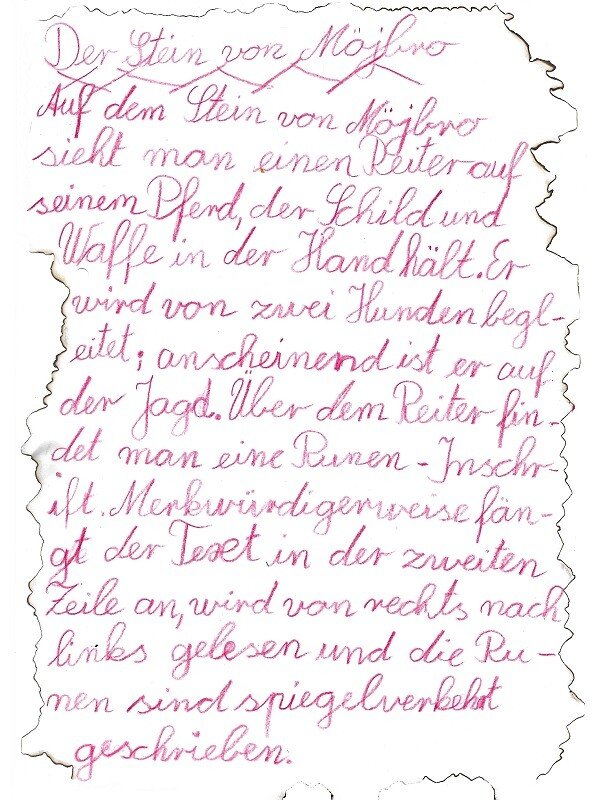 Der Stein von Möjbro
Auf dem Stein von Möjbro
sieht man einen Reiter auf
seinem Pferd, der Schild und
Waffe in der Hand hält. Er
wird von zwei Hunden begl-
eitet; anscheinend ist er auf
der Jagd. Über dem Reiter fin-
det man eine Runen-Inschr-
ift. Merkwürdigerweise fän-
gt der Text in der zweiten
Zeile an, wird von rechts nach
links gelesen und die Ru-
nen sind spiegelverkehrt
geschrieben.